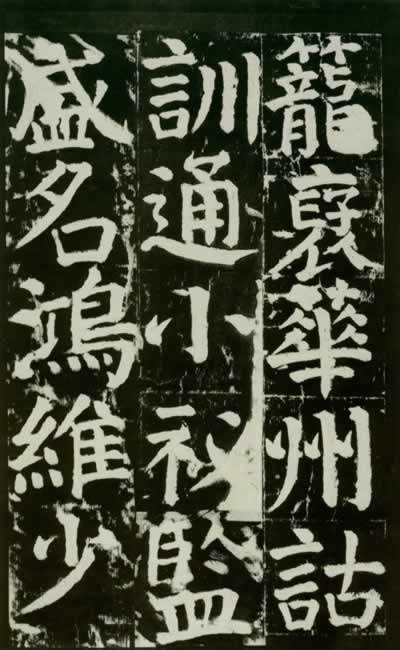 籠襃華州詁
訓通小祕監
盛名鴻維少